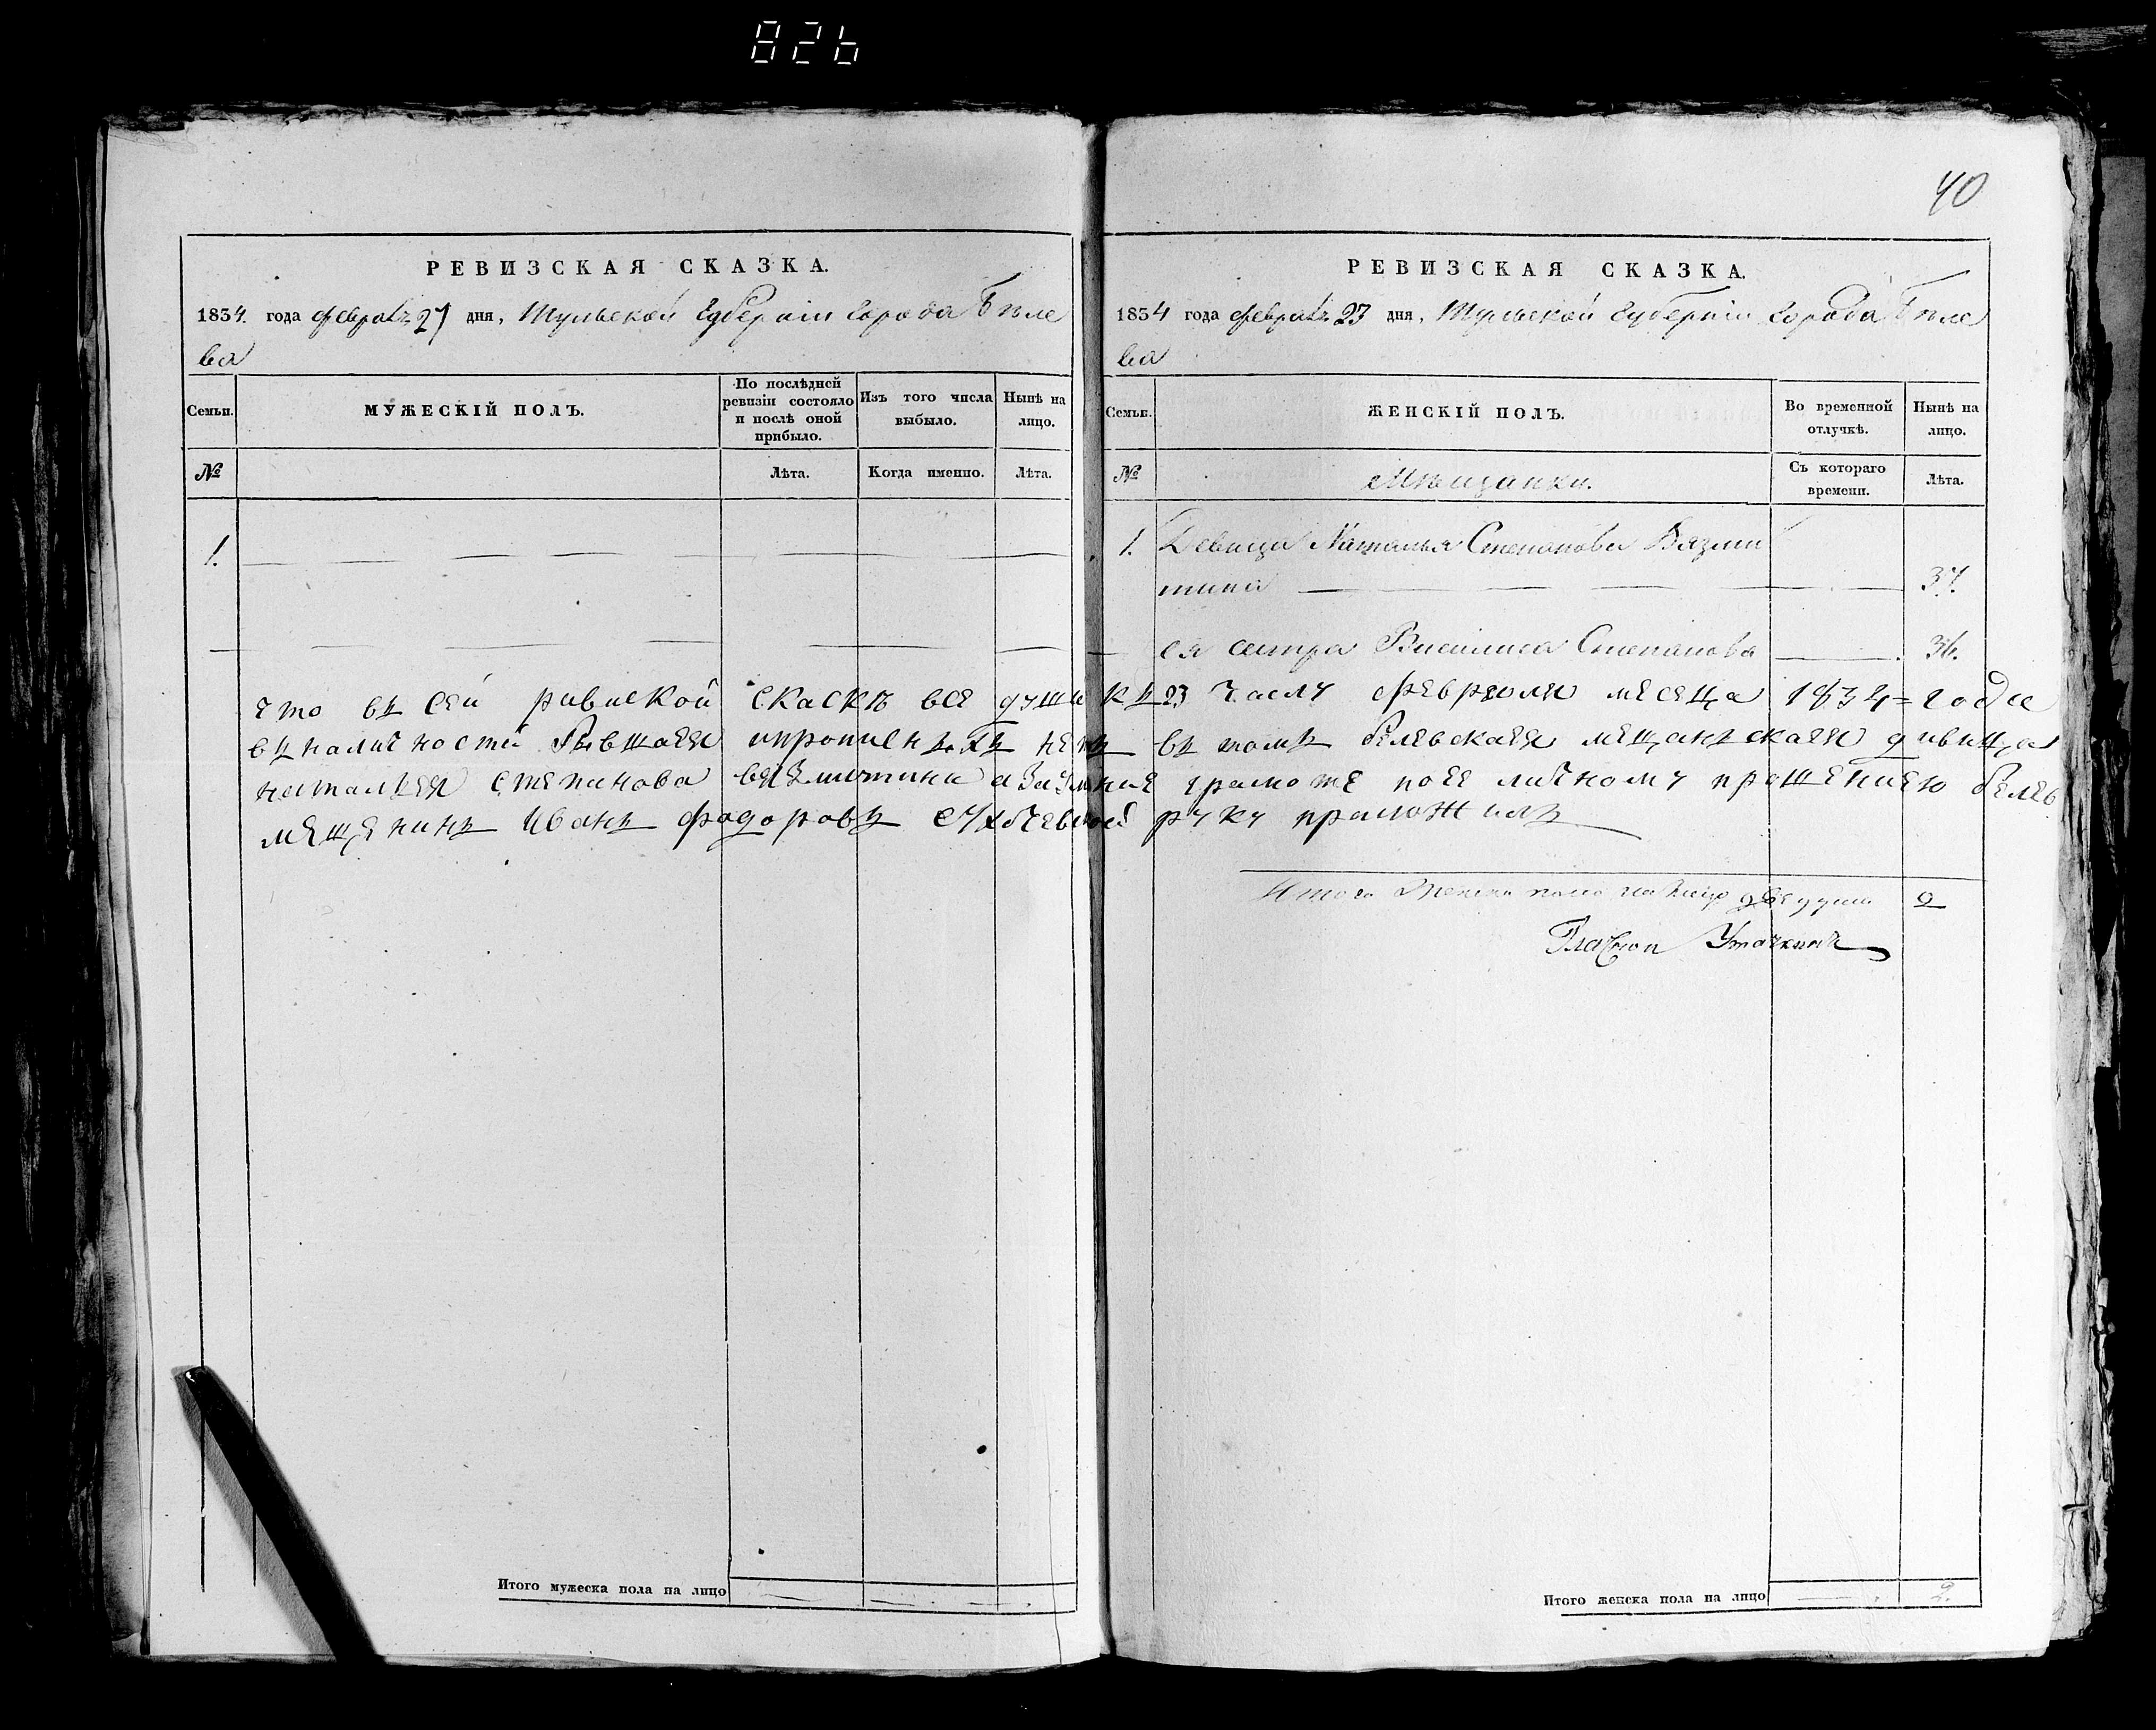 826
40
РЕВИЗСКАЯ СКАЗКА.
1834. года февраля 2 дня, Тульской Губернiи Города Беле
ва
Семьи.
МУЖЕСКIЙ ПОЛЪ.
По послѣдней ревизiи состояло и послѣ оной прибыло.
Изъ того числа выбыло.
Нынѣ на лицо.
№
Лѣта.
Когда именно.
Лѣта.
1.
РЕВИЗСКАЯ СКАЗКА.
1834 года февраля 23 дня, Тульской Губернiи Города Беле
ва
Семьи.
ЖЕНСКIЙ ПОЛЪ.
Во временной отлучкѣ.
Нынѣ на лицо.
№
Мѣщанки.
Съ котораго времени.
Лѣта.
1. Девица Наталья Степанова Вязми
тина 37.
ея сестра Василиса Степанова 36.
что въ сей ривиской скаскѣ все души къ 23 числу февраля месеца 1834 = года
въ наличности бывшая ипропиенъхъ нетъ въ томъ белевская мещанъская дивица
наталея степанова вяъзмитина а занеумение грамоте поее личному прашению белев
мещенинъ Иванъ фадоровъ руку праложилъ
Итого женска пола на лицо две души 2
Гласной Уточкинъ
Итого мужеска пола на лицо
Итого женска пола на лицо 2.